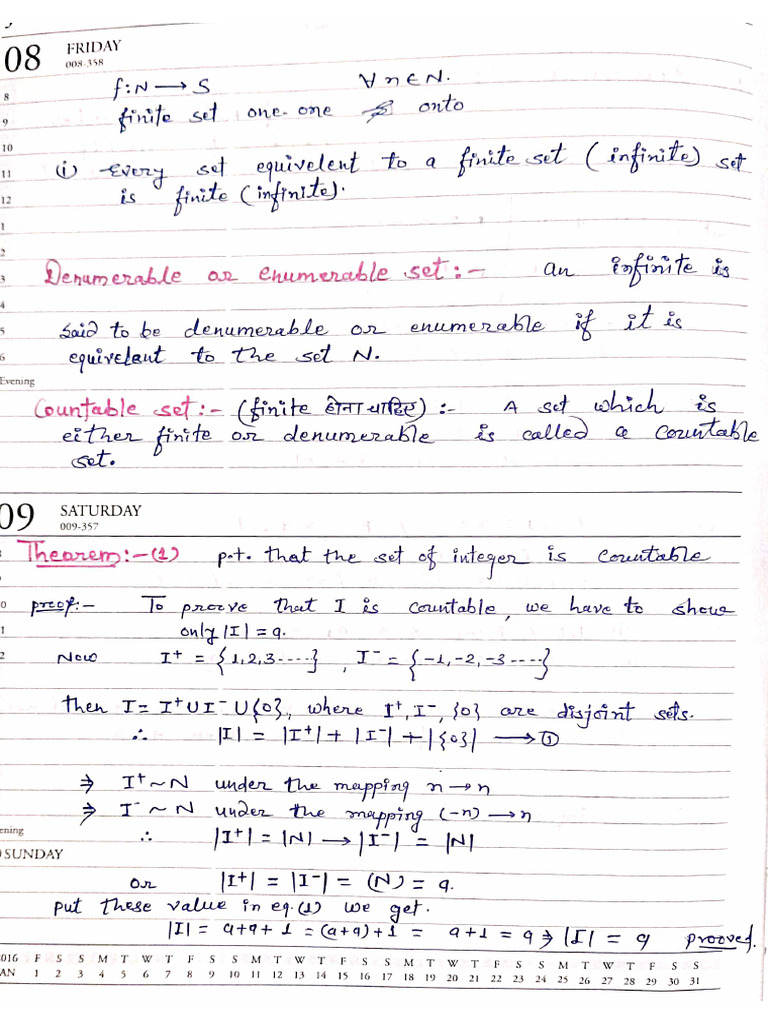 08 FRIDAY
008-358
f:N → S ∀ n ∈ N.
8
finite set one-one onto
9
10
(i) Every set equivelent to a finite set (infinite) set
11
is finite (infinite).
12
1
2
Denumerable or enumerable set:- an infinite is
3
4
said to be denumerable or enumerable if it is
5
equivelant to the set N.
6
Evening
Countable set:- (finite होना चाहिए) :- A set which is
either finite or denumerable is called a countable
set.
09 SATURDAY
009-357
Theorem:-(1) p.t. that the set of integer is countable
proof:- To prove that I is countable, we have to show
only |I| = a.
Now I⁺ = {1,2,3----}, I⁻ = {-1,-2,-3----}
then I = I⁺ U I⁻ U {0}, where I⁺, I⁻, {0} are disjoint sets.
∴ |I| = |I⁺| + |I⁻| + |{0}| → ①
⇒ I⁺ ~ N under the mapping n → n
⇒ I⁻ ~ N under the mapping (-n) → n
ening
∴ |I⁺| = |N| → |I⁻| = |N|
SUNDAY
or |I⁺| = |I⁻| = (N) = a.
put these value in eq.(1) we get.
|I| = a+a+1 = (a+a)+1 = a+1 = a ⇒ |I| = a prooved.
016 F S S M T W T F S S M T W T F S S M T W T F S S M T W T F S S
AN 1 2 3 4 5 6 7 8 9 10 11 12 13 14 15 16 17 18 19 20 21 22 23 24 25 26 27 28 29 30 31